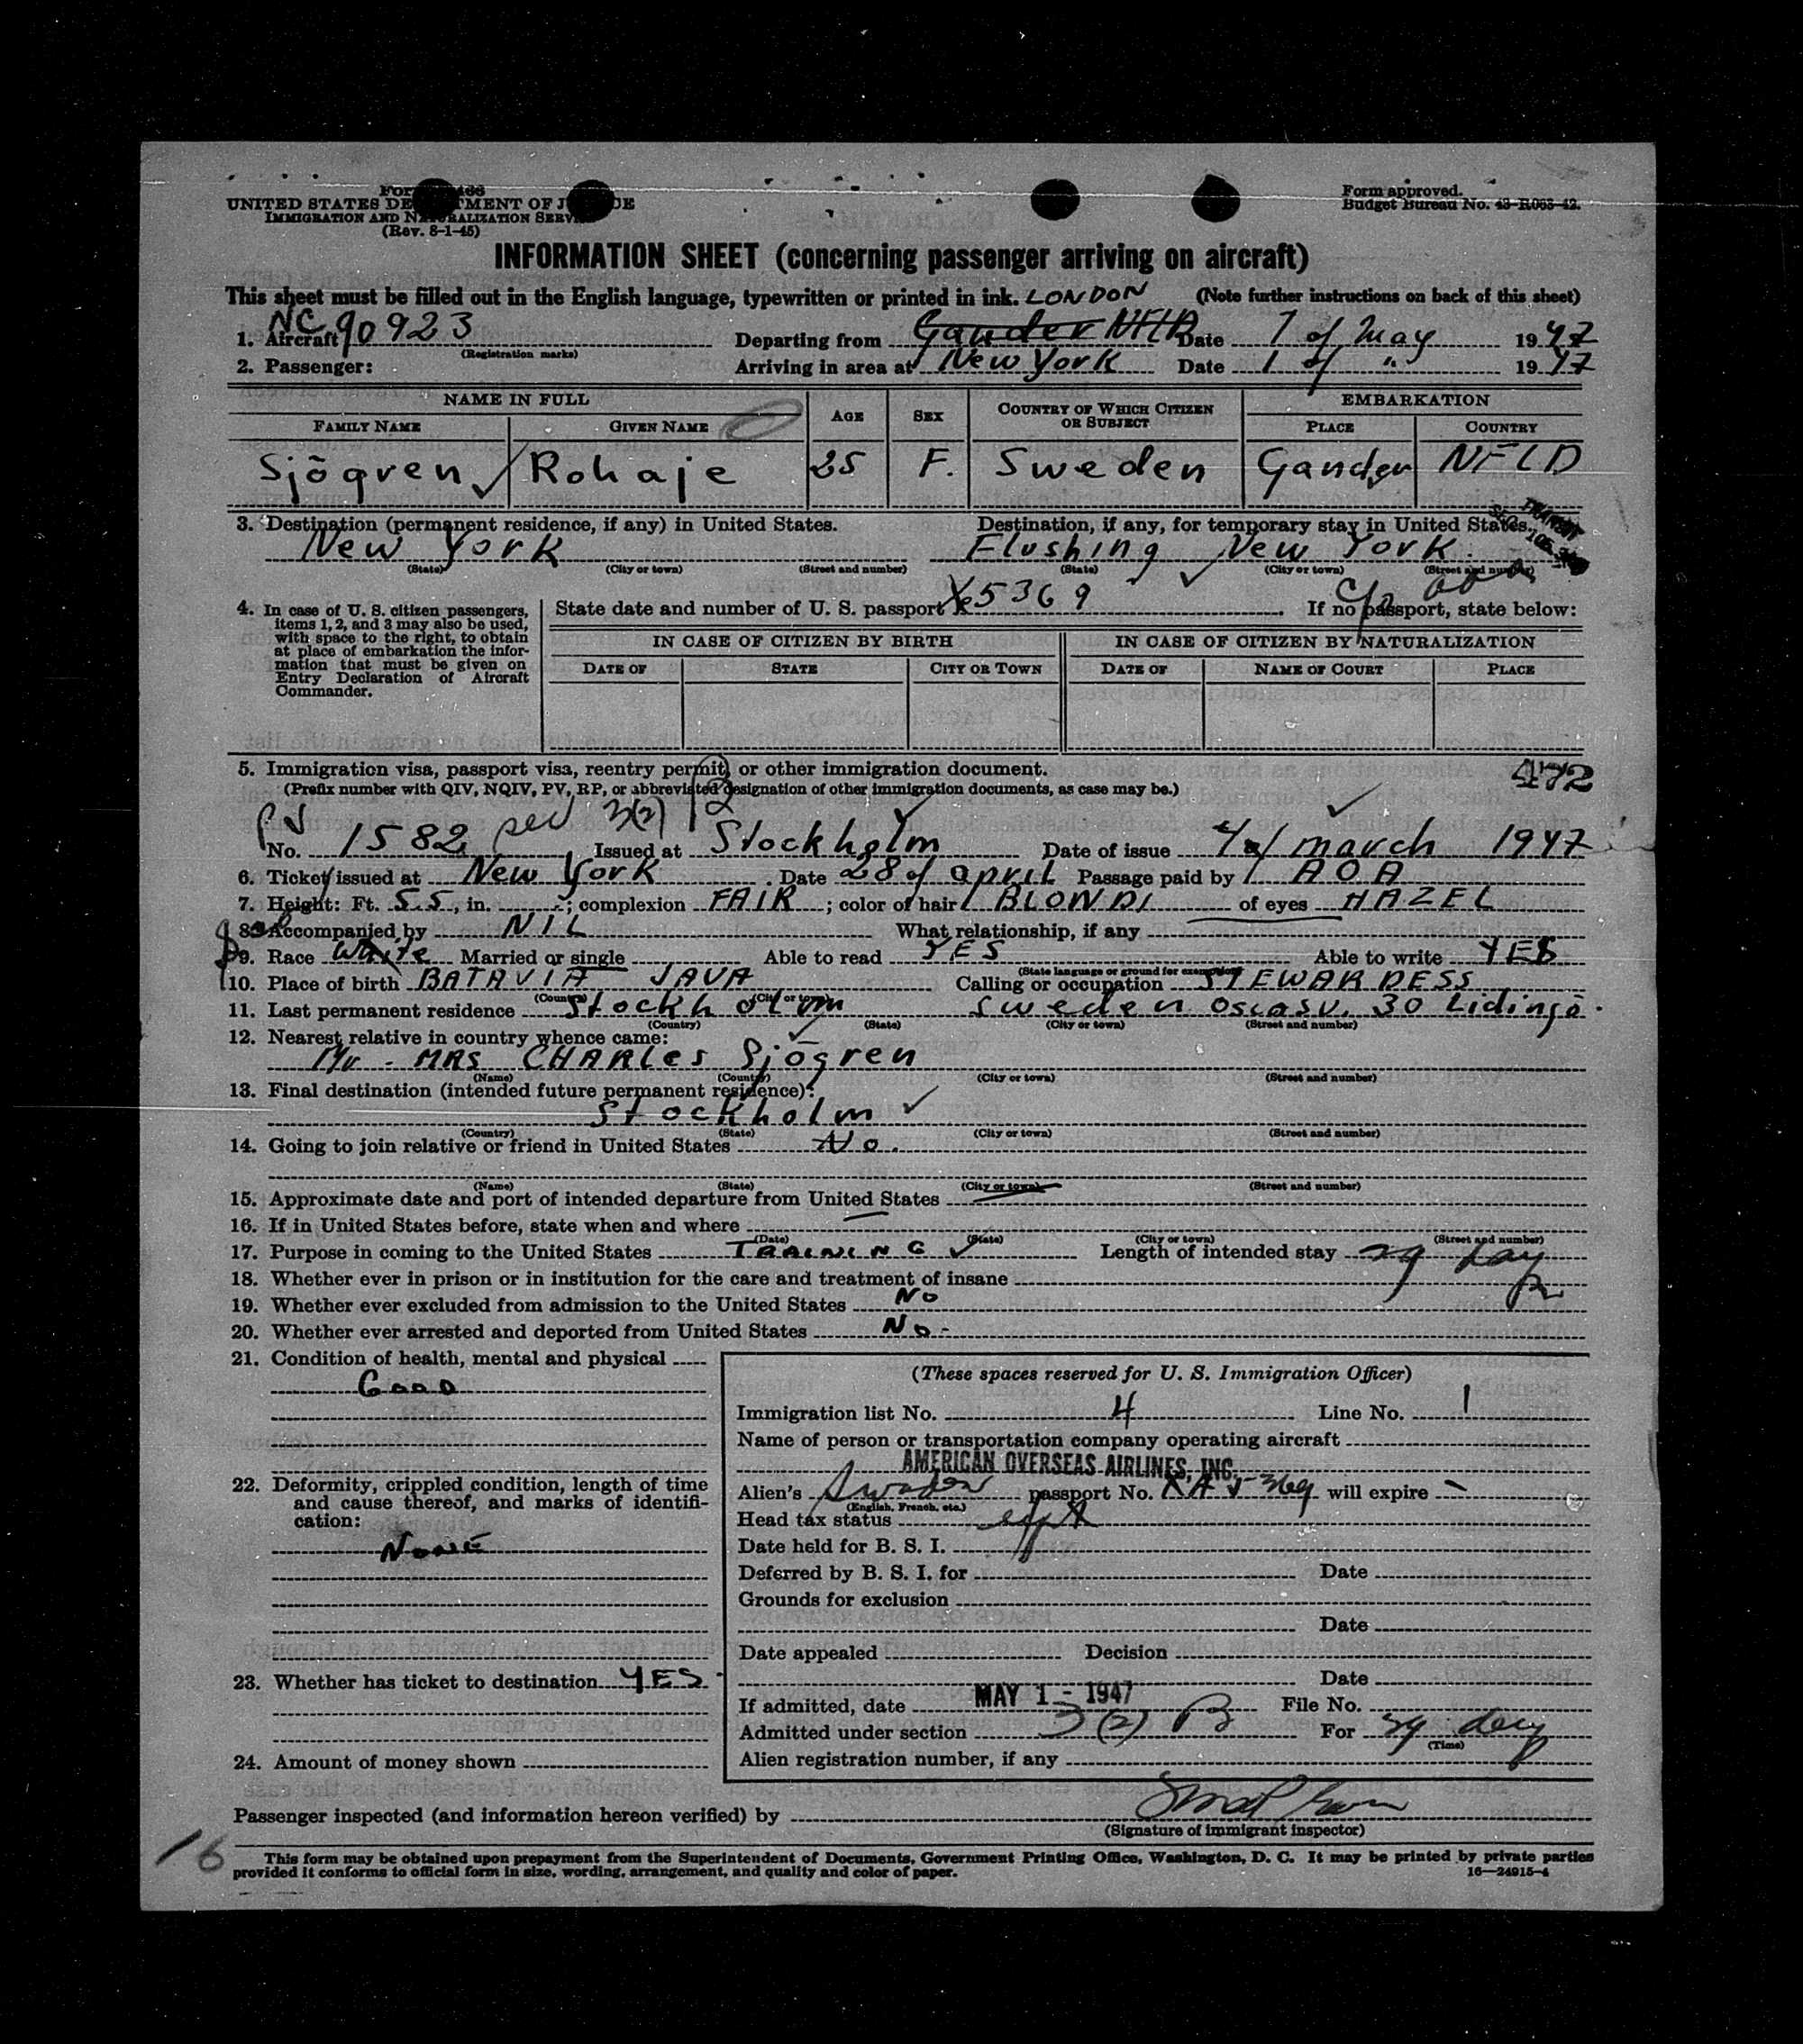 UNITED STATES DEPARTMENT OF JUSTICE
IMMIGRATION AND NATURALIZATION SERVICE
(Rev. 8-1-45)
Form approved.
Budget Bureau No. 43-R063-42.
INFORMATION SHEET (concerning passenger arriving on aircraft)
This sheet must be filled out in the English language, typewritten or printed in ink. LONDON (Note further instructions on back of this sheet)
1. Aircraft NC 90923 Departing from Gander NFLD Date 1 of May 1947
(Registration marks)
2. Passenger: Arriving in area at New York Date 1 of " 1947
NAME IN FULL AGE SEX COUNTRY OF WHICH CITIZEN OR SUBJECT EMBARKATION
FAMILY NAME GIVEN NAME PLACE COUNTRY
Sjögren Rohaje 25 F. Sweden Gander NFLD
3. Destination (permanent residence, if any) in United States. Destination, if any, for temporary stay in United States.
New York Flushing New York.
(State) (City or town) (Street and number) (State) (City or town) (Street and number)
TRANSIT
c/o AOA
4. In case of U. S. citizen passengers, items 1, 2, and 3 may also be used, with space to the right, to obtain at place of embarkation the information that must be given on Entry Declaration of Aircraft Commander.
State date and number of U. S. passport 5369 If no passport, state below:
IN CASE OF CITIZEN BY BIRTH IN CASE OF CITIZEN BY NATURALIZATION
DATE OF STATE CITY OR TOWN DATE OF NAME OF COURT PLACE
5. Immigration visa, passport visa, reentry permit, or other immigration document. 472
(Prefix number with QIV, NQIV, PV, RP, or abbreviated designation of other immigration documents, as case may be.)
PV 3(2)
No. 1582 Issued at Stockholm Date of issue 4 of march 1947
6. Ticket issued at New York Date 28 of april Passage paid by AOA
7. Height: Ft. 5.5, in. ; complexion FAIR ; color of hair BLOND of eyes HAZEL
8. Accompanied by NIL What relationship, if any
9. Race White Married or single Able to read YES Able to write YES
(State language or ground for exemption)
10. Place of birth BATAVIA JAVA Calling or occupation STEWARDESS
(Country) (City or town)
11. Last permanent residence Stockholm Sweden Oscasv. 30 Lidingö.
(Country) (State) (City or town) (Street and number)
12. Nearest relative in country whence came:
Mr - MRS CHARLES Sjögren
(Name) (Country) (City or town) (Street and number)
13. Final destination (intended future permanent residence):
Stockholm
(Country) (State) (City or town) (Street and number)
14. Going to join relative or friend in United States No.
(Name) (State) (City or town) (Street and number)
15. Approximate date and port of intended departure from United States
16. If in United States before, state when and where
(Date) (State) (City or town) (Street and number)
17. Purpose in coming to the United States TRAINING Length of intended stay 29 day
18. Whether ever in prison or in institution for the care and treatment of insane
19. Whether ever excluded from admission to the United States No
20. Whether ever arrested and deported from United States No -
21. Condition of health, mental and physical
GOOD
22. Deformity, crippled condition, length of time and cause thereof, and marks of identification:
NONE
23. Whether has ticket to destination YES
24. Amount of money shown
(These spaces reserved for U. S. Immigration Officer)
Immigration list No. 4 Line No. 1
Name of person or transportation company operating aircraft
AMERICAN OVERSEAS AIRLINES, INC.
Alien's Sweden passport No. will expire -
(English, French, etc.)
Head tax status
Date held for B. S. I.
Deferred by B. S. I. for Date
Grounds for exclusion
Date
Date appealed Decision
Date
If admitted, date MAY 1 - 1947 File No.
Admitted under section 3(2) B For 29 day
(Time)
Alien registration number, if any
Passenger inspected (and information hereon verified) by
(Signature of immigrant inspector)
16
This form may be obtained upon prepayment from the Superintendent of Documents, Government Printing Office, Washington, D. C. It may be printed by private parties
provided it conforms to official form in size, wording, arrangement, and quality and color of paper. 16—24915-4